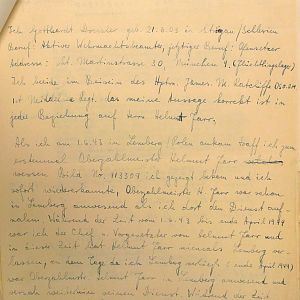 Ich Gotthardt Dressler geb. 21.6.03 in /Schlesien
Beruf: Aktiver Wehrmachtsbeamter, jetziger Beruf: Ofensetzer
Addresse: St. Martinstrasse 30, München 9. (Flüchtlingslager)
Ich beeide im Beisein des Hptm. James. M.
1st Medical Regt. das meine Aussage korrekt ist in
jede Beziehung auf Herrn Helmut Jarr.
Als ich am 1.6.43 in Lemberg (Polen ankam traff ich zum
erstenmal Oberzahlmeister Helmut Jarr
wessen Bild No 113309 ich gezeigt haben und ich
sofort wiedererkannte, Oberzahlmeister H. Jarr war schon
in Lemberg anwesend als ich dort den Dienst auf-
nahm. Während der Zeit vom 1.6.43 bis ende April 1944
war ich der Chef u. Vorgesetzter von Helmut Jarr und
in dieser Zeit hat Helmut Jarr niemals Lemberg ver-
lassen, an dem Tage da ich Lemberg verliess (ende April 1944)
war Oberzahlmeister Helmut Jarr in Lemberg anwesend und
seinen Dienst. Während der Zeit